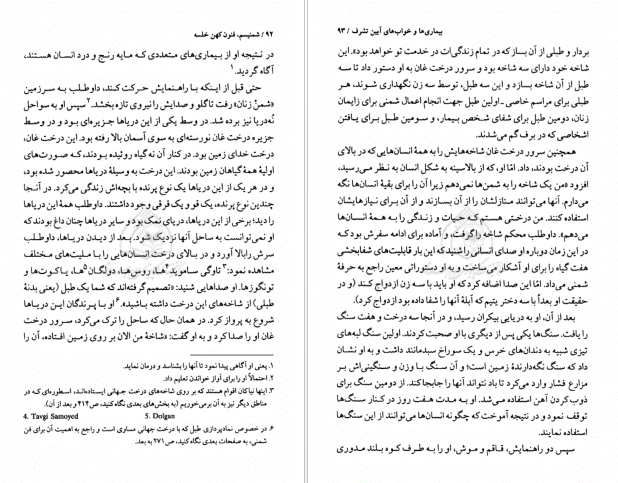 ۹۲ / شمنیسم، فنون کهن خلسه
در نتیجه او از بیماری‌های متعددی که مایه رنج و درد انسان هستند،
آگاه گردید.۱
حتی قبل از اینکه با راهنمایش حرکت کند، داوطلب به سرزمین
«شمنْ زنان» رفت تا گلو و صدایش را نیروی تازه بخشد.۲ سپس او به سواحل
نُه دریا نیز برده شد. در وسط یکی از این دریاها جزیره‌ای بود و در وسط
جزیره درخت غان نورسته‌ای به سوی آسمان بالا رفته بود. این درخت غان،
درخت خدای زمین بود. در کنار آن نه گیاه روئیده بودند، که صورت‌های
اولیهٔ همهٔ گیاهان زمین بودند. این درخت به وسیلهٔ دریاها محصور شده بود،
و در هر یک از این دریاها یک نوع پرنده با بچه‌اش زندگی می‌کرد. در آنجا
چندین نوع پرنده، یک قو و یک قرقی وجود داشتند. داوطلب همهٔ این دریاها
را دید؛ برخی از این دریاها، دریای نمک بود و سایر دریاها چنان داغ بودند که
او نمی‌توانست به ساحل آنها نزدیک شود. بعد از دیدن دریاها، داوطلب
سرش را بالا آورد و در بالای درخت انسان‌هایی را با ملیت‌های مختلف
مشاهده نمود:۳ تاوگی سامویید۴ها، روس‌ها، دولگان۵ها، یاکوت‌ها و
تونگوزها. او صداهایی شنید: «تصمیم گرفته‌اند که شما یک طبل (یعنی بدنهٔ
طبلی) از شاخه‌های این درخت داشته باشید».۶ او با پرندگان این دریاها
شروع به پرواز کرد. در همان حال که ساحل را ترک می‌کرد، سرور درخت
غان او را صدا کرد و به او گفت: «شاخهٔ من الان بر روی زمین افتاده، آن را
۱. یعنی او آگاهی پیدا نمود تا آنها را بشناسد و درمان نماید.
۲. احتمالاً او را برای آواز خواندن تعلیم داد.
۳. اینها نیاکان اقوام هستند که بر روی شاخه‌های درخت جهانی ایستاده‌اند، اسطوره‌ای که در
مناطق دیگر نیز به آن برمی‌خوریم (به بخش‌های بعدی نگاه کنید، ص۴۱۴ و بعد از آن).
4. Tavgi Samoyed 5. Dolgan
۶. در خصوص نمادپردازی طبل که با درخت جهانی مساوی است و راجع به اهمیت آن برای فن
شمنی، به صفحات بعدی نگاه کنید، ص۲۷۱ به بعد.
بیماری‌ها و خواب‌های آیین تشرف / ۹۳
بردار و طبلی از آن بساز که در تمام زندگی‌ات در خدمت تو خواهد بود». این
شاخه خود دارای سه شاخه بود و سرور درخت غان به او دستور داد تا سه
طبل از آن شاخه بسازد و این سه طبل، توسط سه زن نگهداری شوند، هر
طبلی برای مراسم خاصی ـ اولین طبل جهت انجام اعمال شمنی برای زایمان
زنان، دومین طبل برای شفای شخص بیمار، و سومین طبل برای یافتن
اشخاصی که در برف گم می‌شدند.
همچنین سرور درخت غان شاخه‌هایش را به همهٔ انسان‌هایی که در بالای
آن درخت بودند، داد. امّا او، که از بالاسینه به شکل انسان به نظر می‌رسید،
افزود «من یک شاخه را به شمن‌ها نمی‌دهم زیرا آن را برای بقیهٔ انسان‌ها نگه
می‌دارم. آنها می‌توانند منازلشان را از آن بسازند و از آن برای نیازهایشان
استفاده کنند. من درختی هستم که حیات و زندگی را به همهٔ انسان‌ها
می‌دهم». داوطلب محکم شاخه را گرفت، و آماده برای ادامه سفرش بود که
در این زمان دوباره او صدای انسانی را شنید که این بار قابلیت‌های شفابخشی
هفت گیاه را برای او آشکار می‌ساخت و به او دستوراتی معین راجع به حرفهٔ
شمنی می‌داد. امّا این صدا اضافه کرد که او باید با سه زن ازدواج کند (و در
حقیقت او بعداً با سه دختر یتیم که آبلهٔ آنها را شفا داده بود ازدواج کرد).
بعد از آن، او به دریایی بیکران رسید، و در آنجا سه درخت و هفت سنگ
را یافت. سنگ‌ها یکی پس از دیگری با او صحبت کردند. اولین سنگ لبه‌های
تیزی شبیه به دندان‌های خرس و یک سوراخ سبدمانند داشت و به او نشان
داد که سنگ نگه‌دارندهٔ زمین است؛ و آن سنگ با وزن و سنگینی‌اش بر
مزارع فشار وارد می‌کرد تا باد نتواند آنها را جابجا کند. از دومین سنگ برای
ذوب کردن آهن استفاده می‌شد. او به مدت هفت روز در کنار سنگ‌ها
توقف نمود و در نتیجه آموخت که چگونه انسان‌ها می‌توانند از این سنگ‌ها
استفاده نمایند.
سپس دو راهنمایش، قاقم و موش، او را به طرف کوه بلند مدوری